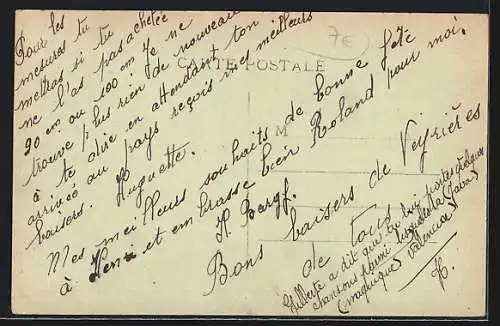 7€
CARTE POSTALE
Pour les
mesures tu
mettras si tu
ne l'as pas achetée
90 cm ou 100 cm Je ne
trouve plus rien de nouveau
à te dire en attendant ton
arrivée au pays reçois mes meilleurs
baisers. Huguette.
Mes meilleurs souhaits de bonne fête
à Henri et embrasse bien Roland pour moi.
H.
Bons baisers de Veyrières
de tous
a dit que tu lui portes quelques
chansons
(musique) Valencia
H.
M